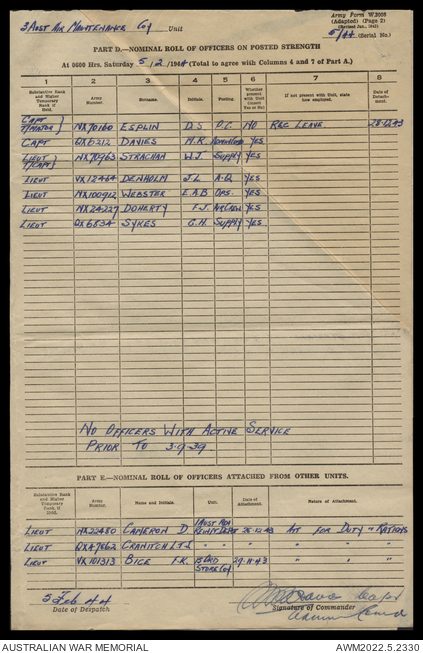 3 Aust Air Maintenance Coy Unit
Army Form W.3008
(Adapted) (Page 2)
(Revised Jan., 1943)
5/44 (Serial No.)
PART D.—NOMINAL ROLL OF OFFICERS ON POSTED STRENGTH
At 0600 Hrs. Saturday 5/2/1944 (Total to agree with Columns 4 and 7 of Part A.)
1 2 3 4 5 6 7 8
Substantive Rank and Higher Temporary Rank if Held. Army Number. Surname. Initials. Posting. Whether present with Unit (Insert Yes or No) If not present with Unit, state how employed. Date of Detachment.
CAPT
T/MAJOR } NX70160 ESPLIN D.S O.C. NO REC LEAVE. 28.12.43
CAPT QX6212 DAVIES M.R. YES
LIEUT
T/CAPT } NX70963 STRACHAN W.J. SUPPLY YES
LIEUT VX12464 DENHOLM J.L A-Q YES
LIEUT NX100912 WEBSTER E.A.B OPS. YES
LIEUT NX24227 DOHERTY F.J. AIR CREW YES
LIEUT QX6834 SYKES G.H. SUPPLY YES
NO OFFICERS WITH ACTIVE SERVICE
PRIOR TO 3-9-39
PART E.—NOMINAL ROLL OF OFFICERS ATTACHED FROM OTHER UNITS.
Substantive Rank and Higher Temporary Rank if Held. Army Number. Name and Initials. Unit. Date of Attachment. Nature of Attachment.
LIEUT NX22480 CAMERON D. 1 AUST 25-12-43 ATT FOR DUTY & RATIONS
LIEUT CRANITCH L.T.J. " " " " "
LIEUT VX101313 BICE F.K. STORE COY 29-11-43 " " "
5 Feb 44
Date of Despatch
Signature of Commander
AUSTRALIAN WAR MEMORIAL
AWM2022.5.2330